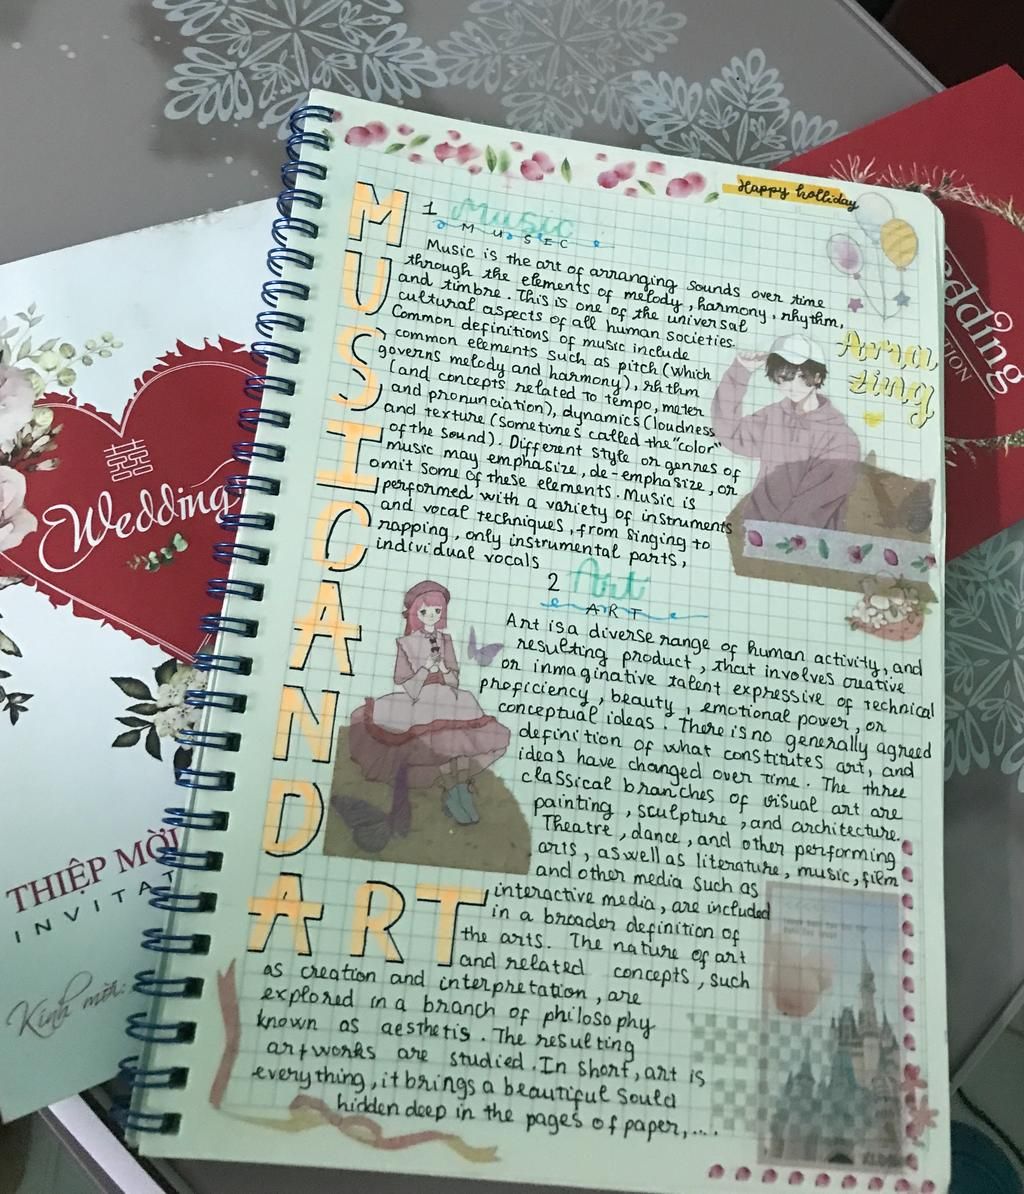 Happy holliday
MUSIC AND ART
1 Music
MUSEC
Music is the art of arranging sounds over time
through the elements of melody, harmony, rhythm,
and timbre. This is one of the universal
cultural aspects of all human societies.
Common definitions of music include
common elements such as pitch (which
governs melody and harmony), rhthm
(and concepts related to tempo, meter
and pronunciation), dynamics (loudness
and texture (sometimes called the "color"
of the sound). Different style or genres of
music may emphasize, de-emphasize, or
omit some of these elements. Music is
performed with a variety of instruments
and vocal techniques, from singing to
rapping, only instrumental parts,
individual vocals
Ama
zing
2 Art
ART
Art is a diverse range of human activity, and
resulting product, that involves creative
or inmaginative talent expressive of technical
proficiency, beauty, emotional power, or
conceptual ideas. There is no generally agreed
definition of what constitutes art, and
ideas have changed over time. The three
classical branches of visual art are
painting, sculpture, and architecture.
Theatre, dance, and other performing
arts, as well as literature, music, film
and other media such as
interactive media, are included
in a broader definition of
the arts. The nature of art
and related concepts, such
as creation and interpretation, are
explored in a branch of philosophy
known as aesthetis. The resulting
artworks are studied. In short, art is
everything, it brings a beautiful sould
hidden deep in the pages of paper,....
囍
Wedding
THIỆP MỜI
INVITAT
Kính mời:
edding
TION